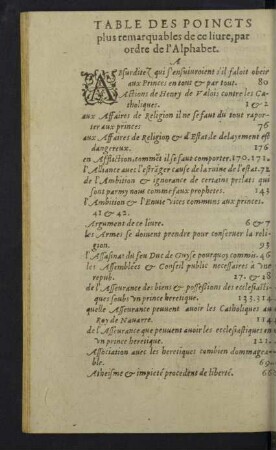 TABLE DES POINCTS
plus remarquables de ce liure, par
ordre de l'Alphabet.
A
ABsurditez qui s'ensuiuroient s'il faloit obeir
aux Princes en tout & par tout. 80
Actions de Henry de Valois contre les Ca-
tholiques. 1 & 2
aux Affaires de Religion il ne se faut du tout rapor-
ter aux princes 76
aux Affaires de Religion & d'Estat le delayement est
dangereux. 176
en Affliction, commét il se faut comporter. 170. 171.
l'Alliance auec l'estráger cause de la ruine de l'estat. 72
de l'Ambition & ignorance de certains prelats qui
sont parmy nous comme faux prophetes. 143
l'Ambition & l'Enuie vices communs aux princes.
41 & 42.
Argument de ce liure. 6 & 7
les Armes se doiuent prendre pour conseruer la reli-
gion. 93
l'Assasinat du feu Duc de Guyse pourquoy commis. 46
les Assemblées & Conseil public necessaires à vne
repub. 27. & 28
de l'Asseurance des biens & possessions des ecclesiasti-
ques soubs vn prince heretique. 133. 314.
quelle Asseurance peuuent auoir les Catholiques au
Roy de Nauarre. 114
de l'Asseurance que peuuent auoir les ecclesiastiques en
vn prince heretique. 121.
Association auec les heretiques combien dommagea-
ble. 69.
Atheisme & impieté procedent de liberté. 66